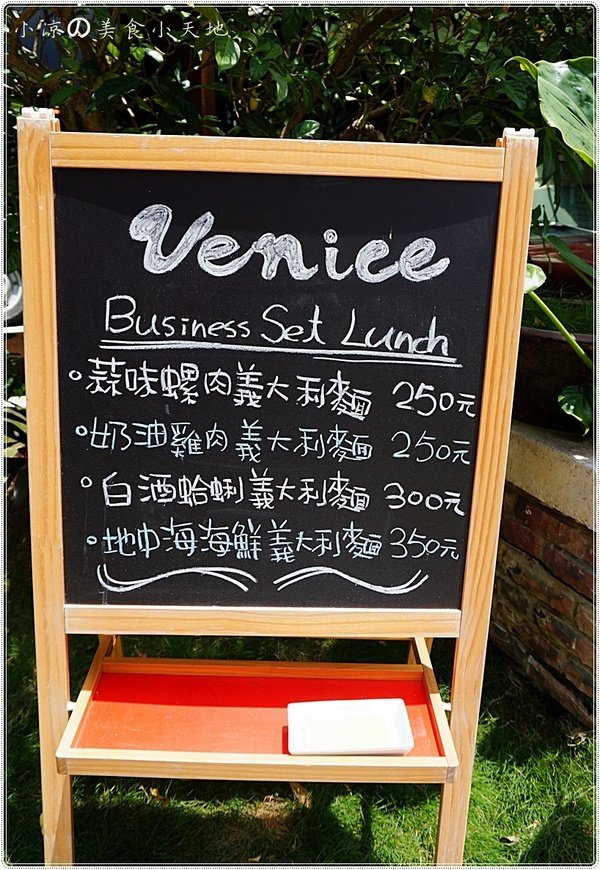 小涼の美食小天地
Venice
Business Set Lunch
蒜味螺肉義大利麵 250元
奶油雞肉義大利麵 250元
白酒蛤蜊義大利麵 300元
地中海海鮮義大利麵 350元